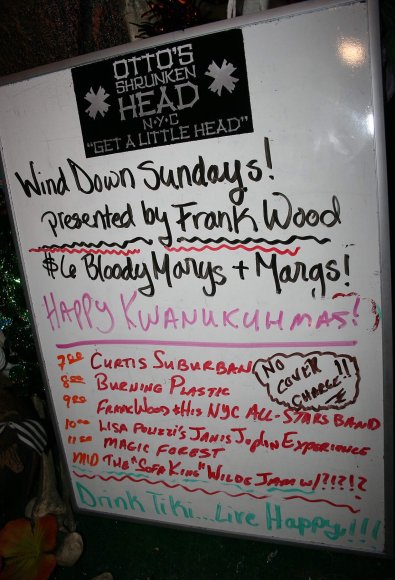 OTTO'S
SHRUNKEN
HEAD
N·Y·C
"GET A LITTLE HEAD"
Wind Down Sundays!
presented by Frank Wood
$6 Bloody Marys + Margs!
HAPPY KWANUKUHMAS!
7:00 CURTIS SUBURBAN
8:00 BURNING PLASTIC
9:00 FRANK WOOD + HIS NYC ALL-STARS BAND
10:00 LISA POLIZZI'S JANIS JOPLIN EXPERIENCE
11:00 MAGIC FOREST
MID THE "SOFA KING" WILDE JAM W/?!?!?
NO
COVER
CHARGE!!
Drink Tiki... Live Happy!!!